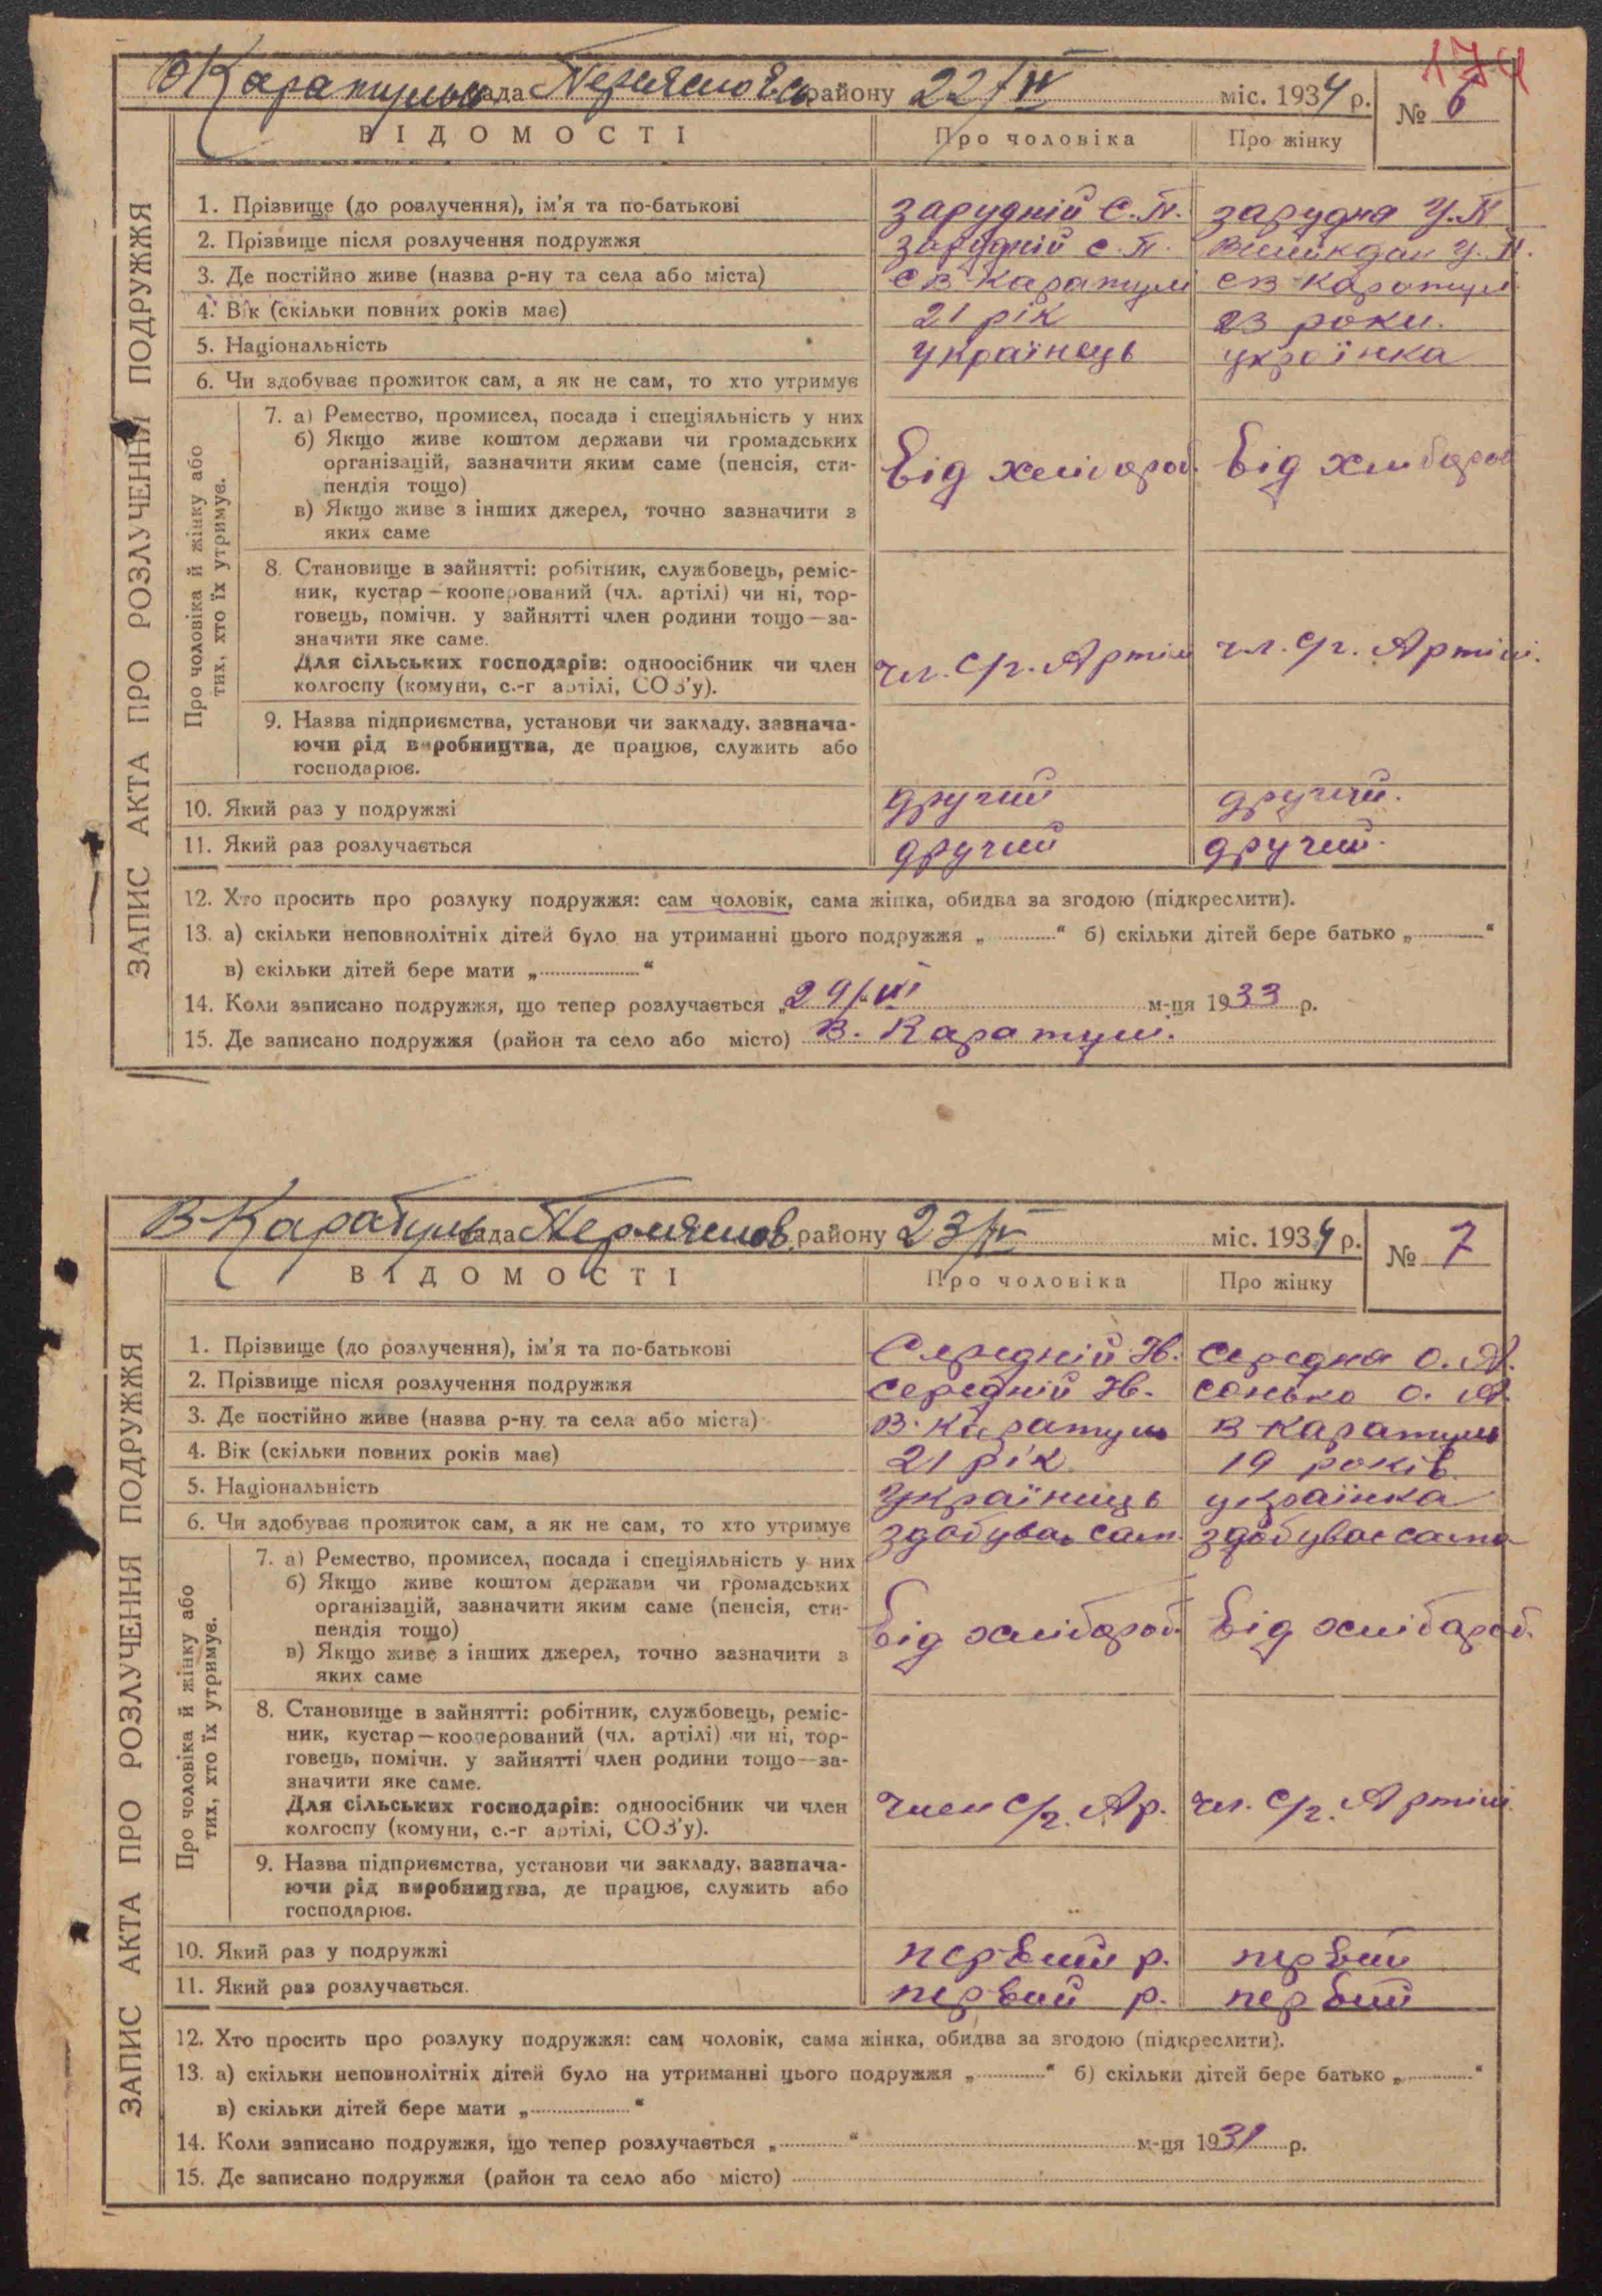 174
Каратульська рада Переяслов району 22/IV міс. 1934 р. № 6
ВІДОМОСТІ Про чоловіка Про жінку
ЗАПИС АКТА ПРО РОЗЛУЧЕННЯ ПОДРУЖЖЯ
1. Прізвище (до розлучення), ім'я та по-батькові зарудній С.П. зарудна У.П
2. Прізвище після розлучення подружжя зарудній С.П. У.П.
3. Де постійно живе (назва р-ну та села або міста) с В Каратулі с В Каратулі
4. Вік (скільки повних років має) 21 рік 23 роки.
5. Національність українець українка
6. Чи здобуває прожиток сам, а як не сам, то хто утримує
Про чоловіка й жінку або тих, хто їх утримує.
7. а) Ремество, промисел, посада і спеціяльність у них
б) Якщо живе коштом держави чи громадських
організацій, зазначити яким саме (пенсія, сти- від хлібороб. від хлібороб
пендія тощо)
в) Якщо живе з інших джерел, точно зазначити з
яких саме
8. Становище в зайнятті: робітник, службовець, реміс-
ник, кустар—кооперований (чл. артілі) чи ні, тор-
говець, помічн. у зайнятті член родини тощо—за-
значити яке саме.
Для сільських господарів: одноосібник чи член чл. С/г. Артілі чл. С/г. Артілі.
колгоспу (комуни, с.-г артілі, СОЗ'у).
9. Назва підприємства, установи чи закладу, зазнача-
ючи рід виробництва, де працює, служить або
господарює.
10. Який раз у подружжі другий другий.
11. Який раз розлучається другий другий.
12. Хто просить про розлуку подружжя: сам чоловік, сама жінка, обидва за згодою (підкреслити).
13. а) скільки неповнолітніх дітей було на утриманні цього подружжя „ “ б) скільки дітей бере батько „ “
в) скільки дітей бере мати „ “
14. Коли записано подружжя, що тепер розлучається „29/VI м-ця 1933 р.
15. Де записано подружжя (район та село або місто) В. Каратулі.
В-Каратуль рада Переяслов. району 23/IV міс. 1934 р. № 7
ВІДОМОСТІ Про чоловіка Про жінку
ЗАПИС АКТА ПРО РОЗЛУЧЕННЯ ПОДРУЖЖЯ
1. Прізвище (до розлучення), ім'я та по-батькові Середній Н. середня О. Я.
2. Прізвище після розлучення подружжя середній Н. сонько О. Я.
3. Де постійно живе (назва р-ну та села або міста) В. Каратуль В Каратуль
4. Вік (скільки повних років має) 21 рік 19 років.
5. Національність українець українка
6. Чи здобуває прожиток сам, а як не сам, то хто утримує здобуває сам. здобуває сама
Про чоловіка й жінку або тих, хто їх утримує.
7. а) Ремество, промисел, посада і спеціяльність у них
б) Якщо живе коштом держави чи громадських
організацій, зазначити яким саме (пенсія, сти-
пендія тощо) від хлібороб. від хлібороб.
в) Якщо живе з інших джерел, точно зазначити з
яких саме
8. Становище в зайнятті: робітник, службовець, реміс-
ник, кустар—кооперований (чл. артілі) чи ні, тор-
говець, помічн. у зайнятті член родини тощо—за-
значити яке саме.
Для сільських господарів: одноосібник чи член член С/г. Ар. чл. С/г. Артілі
колгоспу (комуни, с.-г артілі, СОЗ'у).
9. Назва підприємства, установи чи закладу, зазнача-
ючи рід виробництва, де працює, служить або
господарює.
10. Який раз у подружжі первий р. первий
11. Який раз розлучається. первий р. первий
12. Хто просить про розлуку подружжя: сам чоловік, сама жінка, обидва за згодою (підкреслити).
13. а) скільки неповнолітніх дітей було на утриманні цього подружжя „ “ б) скільки дітей бере батько „ “
в) скільки дітей бере мати „ “
14. Коли записано подружжя, що тепер розлучається „ “ м-ця 1931 р.
15. Де записано подружжя (район та село або місто)